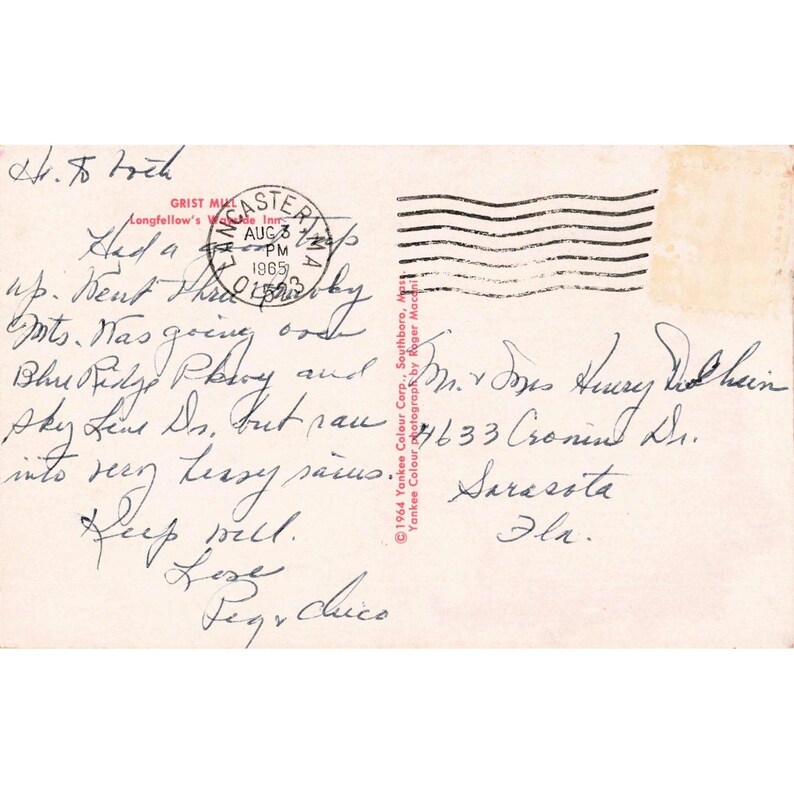 Hi. To both
GRIST MILL
Longfellow's Wayside Inn
Had a good trip
up. Went thru
Mts. Was going over
Blue Ridge Pkwy and
Sky Line Dr, but ran
into very heavy rains.
Keep well.
Love
Peg & Chico
LANCASTER, MA
AUG 3
PM
1965
01523
©1964 Yankee Colour Corp., Southboro, Mass.
Yankee Colour photograph by Roger Maconi
Mr. & Mrs Henry
4633 Cronin Dr.
Sarasota
Fla.